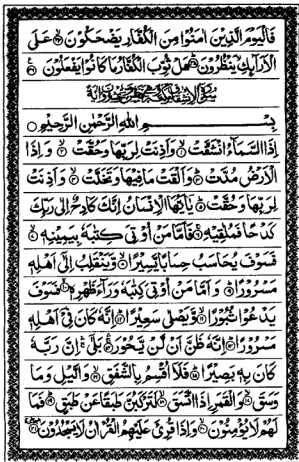 فَالْيَوْمَ الَّذِيْنَ اٰمَنُوْا مِنَ الْكُفَّارِ يَضْحَكُوْنَ ۝ عَلَى
الْاَرَآىِٕكِ يَنْظُرُوْنَ ۝ هَلْ ثُوِّبَ الْكُفَّارُ مَا كَانُوْا يَفْعَلُوْنَ ۝
بِسْمِ اللهِ الرَّحْمٰنِ الرَّحِيْمِ ۝
اِذَا السَّمَآءُ انْشَقَّتْ ۝ وَاَذِنَتْ لِرَبِّهَا وَحُقَّتْ ۝ وَاِذَا
الْاَرْضُ مُدَّتْ ۝ وَاَلْقَتْ مَا فِيْهَا وَتَخَلَّتْ ۝ وَاَذِنَتْ
لِرَبِّهَا وَحُقَّتْ ۝ يٰۤاَيُّهَا الْاِنْسَانُ اِنَّكَ كَادِحٌ اِلٰى رَبِّكَ
كَدْحًا فَمُلٰقِيْهِ ۝ فَاَمَّا مَنْ اُوْتِيَ كِتٰبَهٗ بِيَمِيْنِهٖ ۝
فَسَوْفَ يُحَاسَبُ حِسَابًا يَّسِيْرًا ۝ وَّيَنْقَلِبُ اِلٰۤى اَهْلِهٖ
مَسْرُوْرًا ۝ وَاَمَّا مَنْ اُوْتِيَ كِتٰبَهٗ وَرَآءَ ظَهْرِهٖ ۝ فَسَوْفَ
يَدْعُوْا ثُبُوْرًا ۝ وَّيَصْلٰى سَعِيْرًا ۝ اِنَّهٗ كَانَ فِيْۤ اَهْلِهٖ
مَسْرُوْرًا ۝ اِنَّهٗ ظَنَّ اَنْ لَّنْ يَّحُوْرَ ۝ بَلٰۤى ۛ اِنَّ رَبَّهٗ
كَانَ بِهٖ بَصِيْرًا ۝ فَلَاۤ اُقْسِمُ بِالشَّفَقِ ۝ وَالَّيْلِ وَمَا
وَسَقَ ۝ وَالْقَمَرِ اِذَا اتَّسَقَ ۝ لَتَرْكَبُنَّ طَبَقًا عَنْ طَبَقٍ ۝ فَمَا
لَهُمْ لَا يُؤْمِنُوْنَ ۝ وَاِذَا قُرِئَ عَلَيْهِمُ الْقُرْاٰنُ لَا يَسْجُدُوْنَ ۝